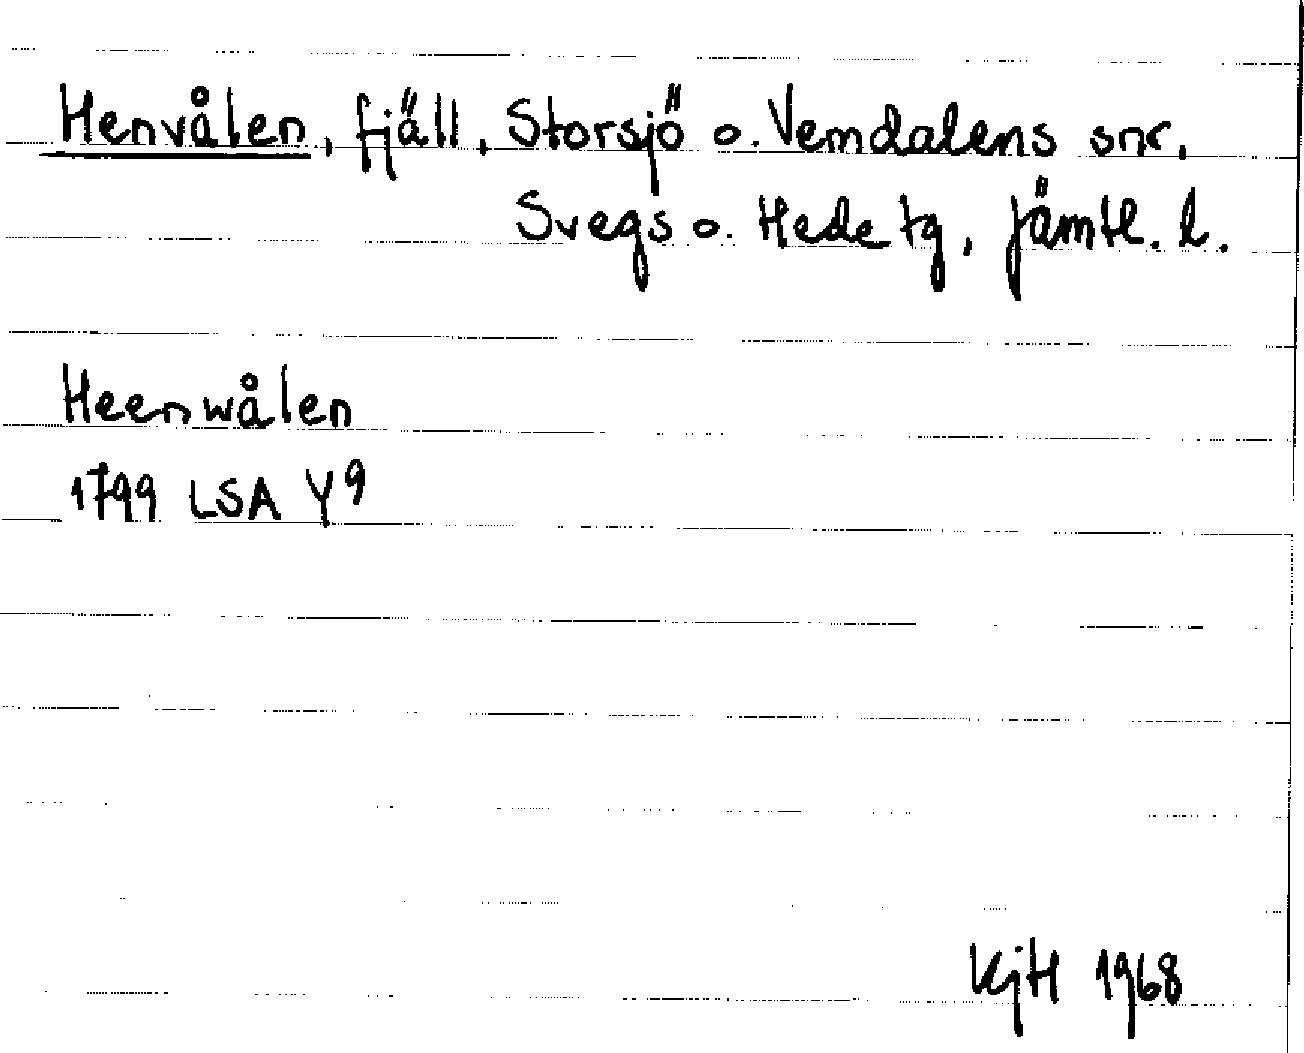 Henvålen, fjäll, Storsjö o. Vemdalens snr,
Svegs o. Hede tg, Jämtl. l.
Heenwålen
1799 LSA Y9
KjH 1968